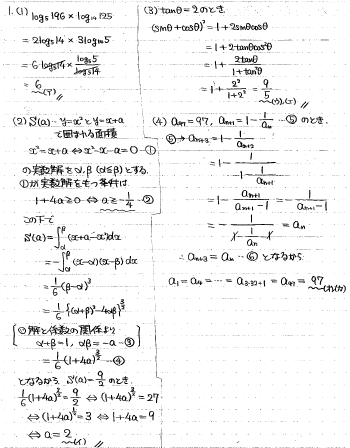 1.(1) log₅196 × log₁₄125
= 2log₅14 × 3log₁₄5
= 6·log₅14 × log₅5/log₅14
= 6 (ア) 〃
(2) S(a)…y=x²とy=x+a
で囲まれる面積
x²=x+a ⇔ x²-x-a=0 …①
の実数解をα,β (α≦β)とする
①が実数解をもつ条件は
1+4a≧0 ⇔ a≧-1/4 …②
この下で
S(a)=∫_α^β (x+a-x²)dx
=-∫_α^β (x-α)(x-β)dx
=1/6(β-α)³
=1/6{(α+β)²-4αβ}^(3/2)
[①解と係数の関係より
α+β=1, αβ=-a …③]
=1/6(1+4a)^(3/2) …④
となるから S(a)=9/2のとき
1/6(1+4a)^(3/2)=9/2 ⇔ (1+4a)^(3/2)=27
⇔ (1+4a)^(1/2)=3 ⇔ 1+4a=9
⇔ a=2 (イ) 〃
(3) tanθ=2のとき
(sinθ+cosθ)²=1+2sinθcosθ
=1+2tanθcos²θ
=1+2tanθ/(1+tan²θ)
=1+2²/(1+2²)=9/5 (ウ),(エ) 〃
(4) a₉₇=97, aₙ₊₁=1-1/aₙ …⑤ のとき
⑤→ aₙ₊₃=1-1/aₙ₊₂
=1-1/(1-1/aₙ₊₁)
=1-aₙ₊₁/(aₙ₊₁-1)=-1/(aₙ₊₁-1)
=-1/(1-1/aₙ-1)=aₙ
∴ aₙ₊₃=aₙ …⑥ となるから
a₁=a₄=…=a₃·₃₂₊₁=a₉₇=97 (オ)(カ) 〃